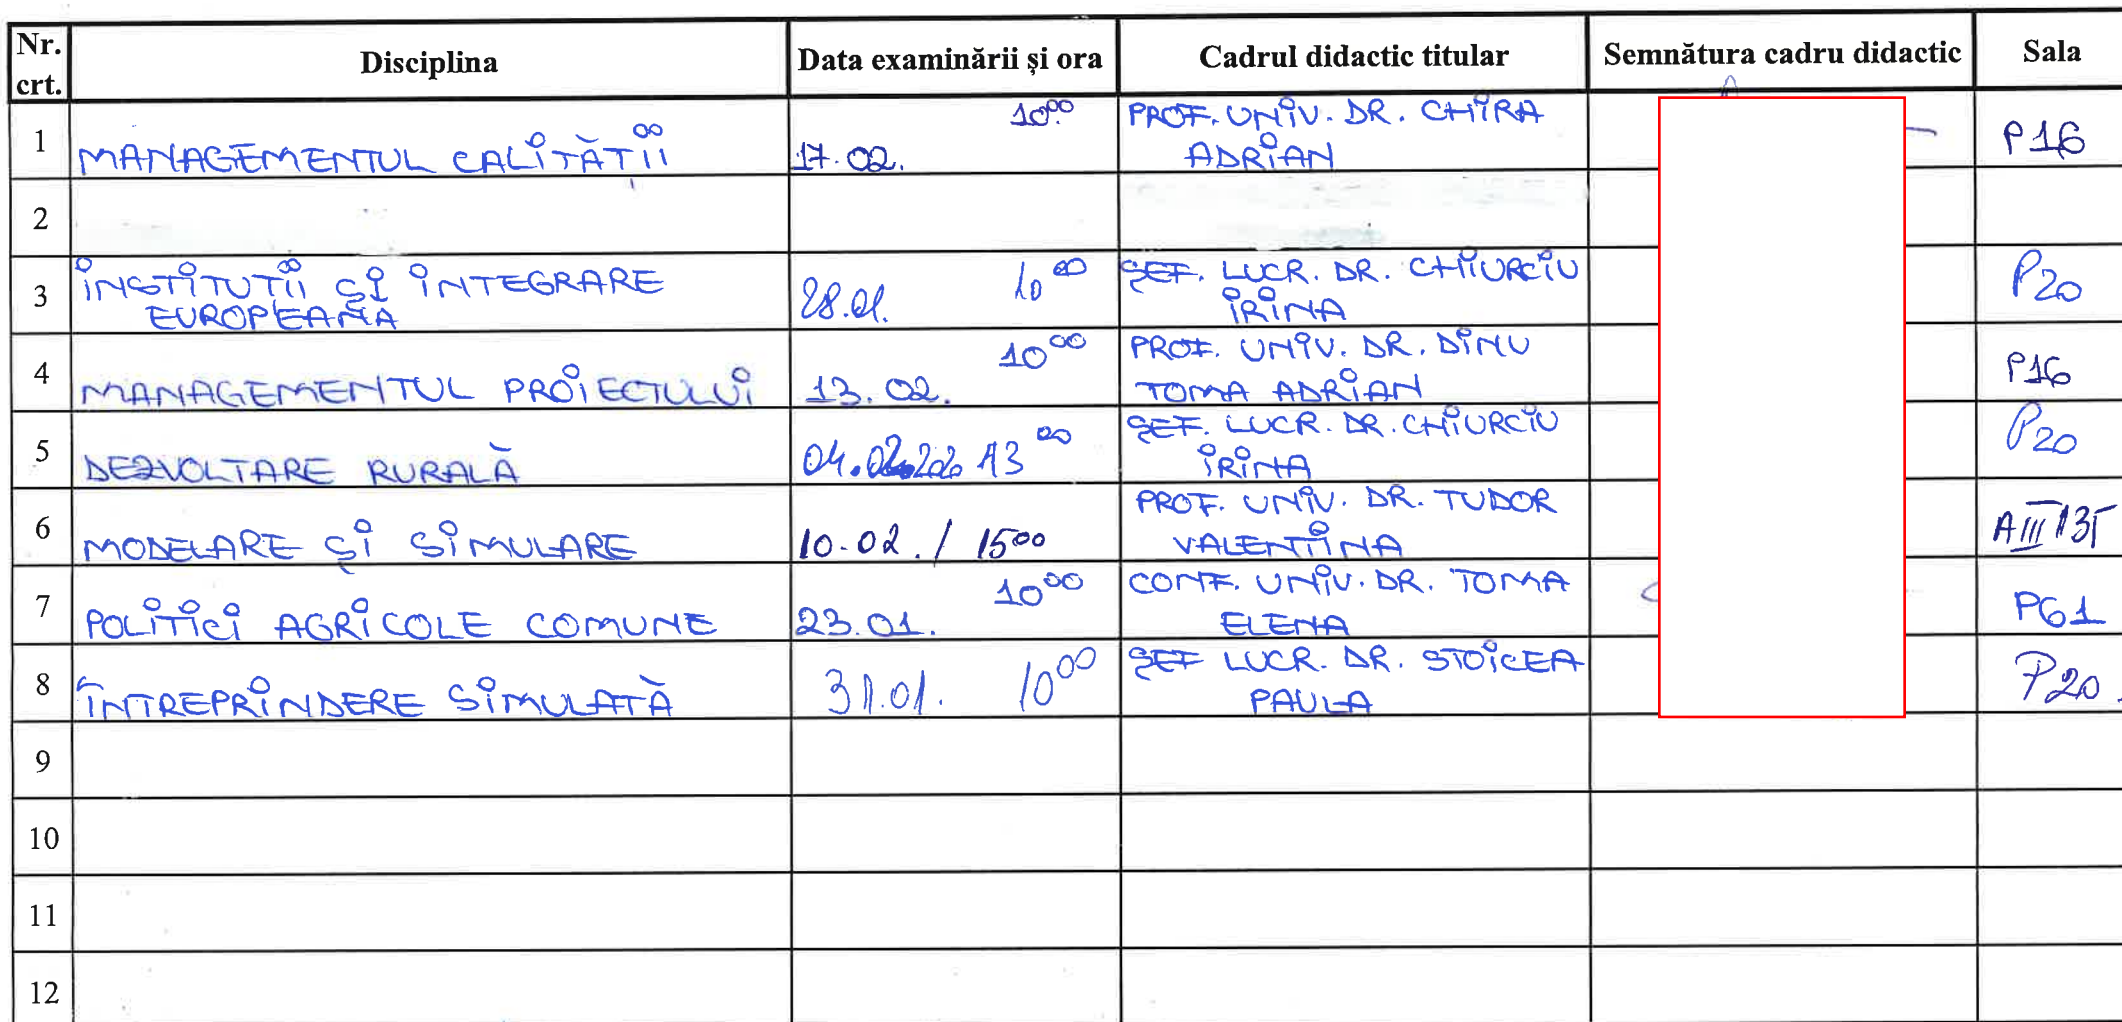 Nr. crt. Disciplina Data examinării și ora Cadrul didactic titular Semnătura cadru didactic Sala
1 MANAGEMENTUL CALITĂȚII 17.02. 10⁰⁰ PROF. UNIV. DR. CHIRA ADRIAN P16
2
3 INSTITUTII ȘI INTEGRARE EUROPEANA 28.01. 10⁰⁰ ȘEF. LUCR. DR. CHIURCIU IRINA P20
4 MANAGEMENTUL PROIECTULUI 13.02. 10⁰⁰ PROF. UNIV. DR. DINU TOMA ADRIAN P16
5 DEZVOLTARE RURALĂ 04.02. 13⁰⁰ ȘEF. LUCR. DR. CHIURCIU IRINA P20
6 MODELARE ȘI SIMULARE 10.02. / 15⁰⁰ PROF. UNIV. DR. TUDOR VALENTINA AIII 135
7 POLITICI AGRICOLE COMUNE 23.01. 10⁰⁰ CONF. UNIV. DR. TOMA ELENA P61
8 ÎNTREPRINDERE SIMULATĂ 31.01. 10⁰⁰ ȘEF LUCR. DR. STOICEA PAULA P20
9
10
11
12